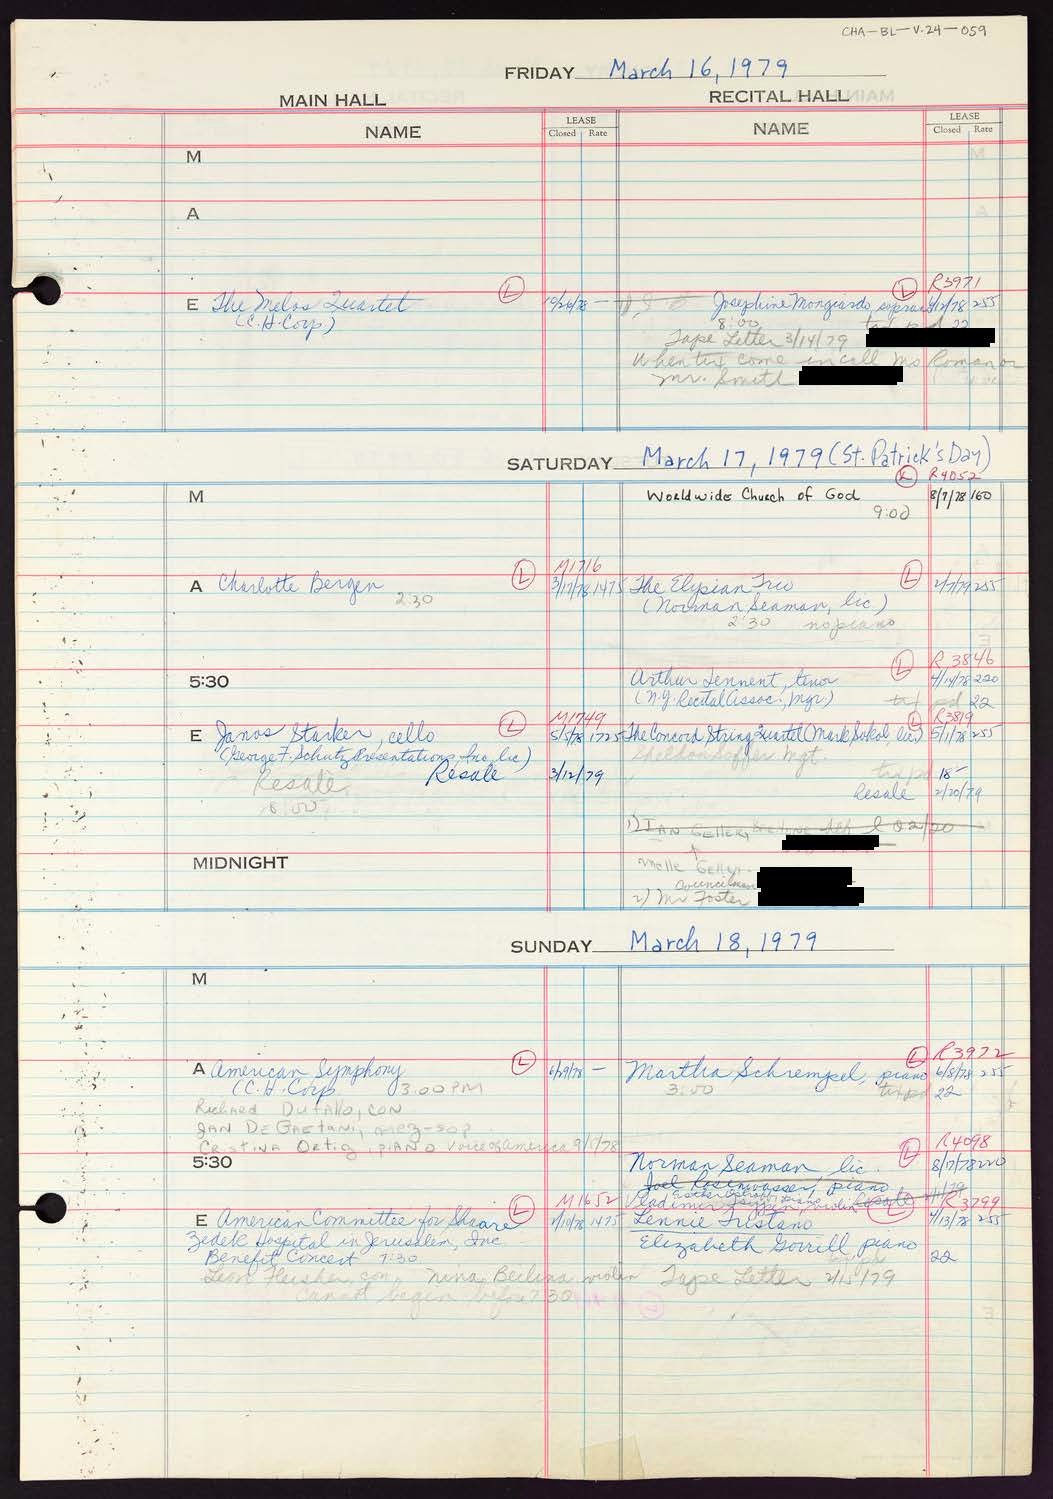 CHA-BL-V.24-059
FRIDAY March 16, 1979
MAIN HALL
RECITAL HALL
NAME
LEASE
Closed Rate
NAME
LEASE
Closed Rate
M
A
E The Melos Quartet
(C.H. Corp)
L
10/26/78 —
Josephine Mongiardo, soprano
L
R3971
255
8:00
22
Tape Letter 3/14/79
When tix come in call Ms Roman or
Mr. Smith
SATURDAY March 17, 1979 (St. Patrick's Day)
M
Worldwide Church of God
L
R4052
8/7/78 160
9:00
A Charlotte Bergen
2:30
L
M1716
3/17/78 1475
The Elysian Trio
(Norman Seaman, lic.)
2:30 no piano
L
2/7/79 255
5:30
Arthur Tennent, tenor
(N.Y. Recital Assoc., Mgr)
L
R 3846
4/14/78 220
tax pd 22
E Janos Starker, cello
(George F. Schutz Presentations, Inc, lic)
Resale
Resale
8:00
L
M1749
5/5/78 1725
3/12/79
The Concord String Quartet (Mark Sokol, lic)
Sheldon Soffer Mgt.
L
R3819
5/1/78 255
tax pd 18-
Resale 2/20/79
1) IAN Geller,
Councilman
2) Mr Foster
MIDNIGHT
SUNDAY March 18, 1979
M
A American Symphony
(C.H. Corp 3:00 PM
Richard Dufallo, CON
JAN DeGaetani, mez-sop
Cristina Ortiz, piano Voice of america 9/1/78
L
6/29/78 —
Martha Schrempel, piano
3:00
L
R3972
6/8/78 255
tax pd 22
5:30
Norman Seaman lic.
Joel Rosenwasser, piano
L
R4098
8/17/78 220
E American Committee for Shaare
Zedek Hospital in Jerusalem, Inc
Benefit Concert 7:30
Leon Fleisher, con, Nina Beilina, violin
Cannot begin before 7:30
L
M1652
1475
Lennie Tristano
Elizabeth Gorrill piano
L
R3799
4/13/78 255
22
Tape Letter 2/15/79